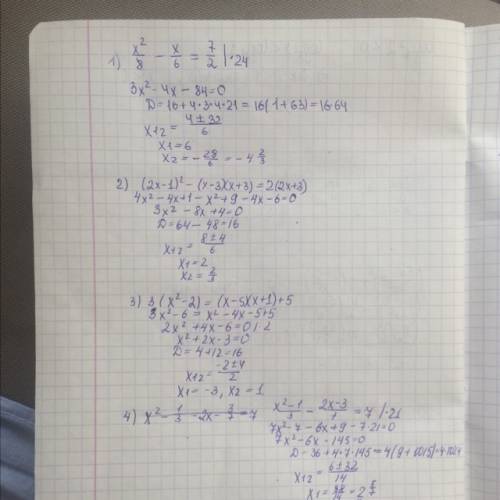 1) x²/8 - x/6 = 7/2 | · 24
3x² - 4x - 84 = 0
D = 16 + 4 · 3 · 4 · 21 = 16(1 + 63) = 16 64
x₁,₂ = (4 ± 32)/6
x₁ = 6
x₂ = - 28/6 = - 4 2/3
2) (2x-1)² - (x-3)(x+3) = 2(2x+3)
4x² - 4x + 1 - x² + 9 - 4x - 6 = 0
3x² - 8x + 4 = 0
D = 64 - 48 = 16
x₁,₂ = (8 ± 4)/6
x₁ = 2
x₂ = 2/3
3) 3(x² - 2) = (x-5)(x+1) + 5
3x² - 6 = x² - 4x - 5 + 5
2x² + 4x - 6 = 0 /: 2
x² + 2x - 3 = 0
D = 4 + 12 = 16
x₁,₂ = (-2 ± 4)/2
x₁ = -3, x₂ = 1
4) x² - 1/3 - 2x - 3/7 = 7
(x² - 1)/3 - (2x - 3)/1 = 7 | · 21
7x² - 7 - 6x + 9 - 7 · 21 = 0
7x² - 6x - 145 = 0
D = 36 + 4 · 7 · 145 = 4(9 + 1015) = 4 · 1024
x₁,₂ = (6 ± 32)/14